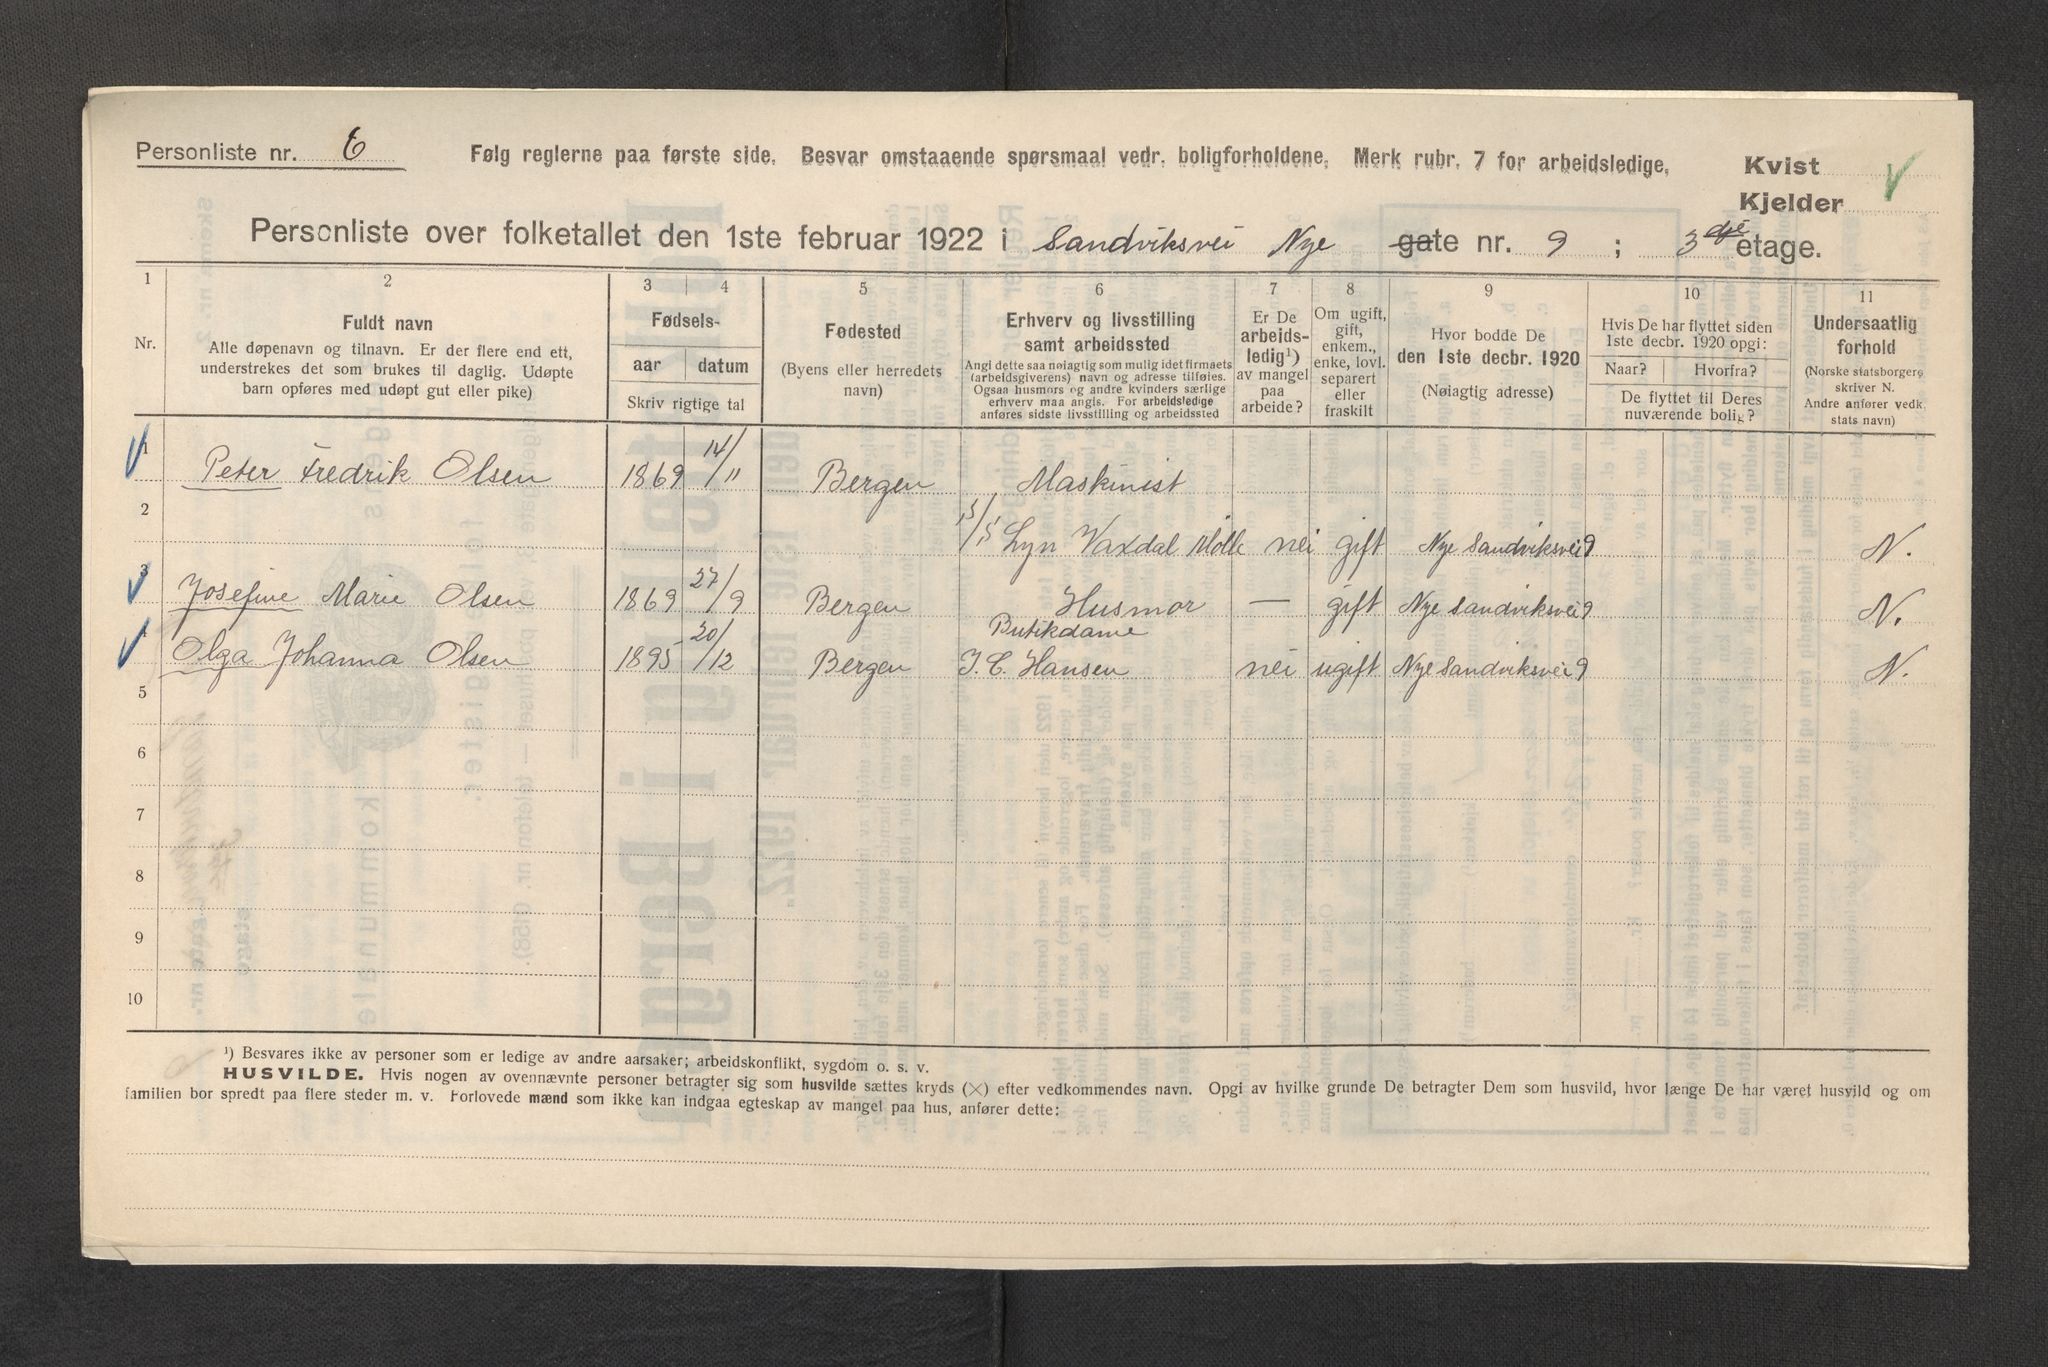 Personliste nr. 6
Følg reglerne paa første side. Besvar omstaaende spørsmaal vedr. boligforholdene. Merk rubr. 7 for arbeidsledige.
Kvist
Kjelder
Personliste over folketallet den 1ste februar 1922 i Sandviksvei Nye gate nr. 9 ; 3dje etage.
1 2 3 4 5 6 7 8 9 10 11
Nr.
Fuldt navn
Alle døpenavn og tilnavn. Er der flere end ett,
understrekes det som brukes til daglig. Udøpte
barn opføres med udøpt gut eller pike)
Fødsels-
aar datum
Skriv rigtige tal
Fødested
(Byens eller herredets
navn)
Erhverv og livsstilling
samt arbeidssted
Angi dette saa nøiagtig som mulig idet firmaets
(arbeidsgiverens) navn og adresse tilføies.
Ogsaa husmors og andre kvinders særlige
erhverv maa angis. For arbeidsledige
anføres sidste livsstilling og arbeidssted
Er De
arbeids-
ledig¹)
av mangel
paa
arbeide?
Om ugift,
gift,
enkem.,
enke, lovl.
separert
eller
fraskilt
Hvor bodde De
den 1ste decbr. 1920
(Nøiagtig adresse)
Hvis De har flyttet siden
1ste decbr. 1920 opgi:
Naar? Hvorfra?
De flyttet til Deres
nuværende bolig?
Undersaatlig
forhold
(Norske statsborgere
skriver N.
Andre anfører vedk.
stats navn)
1 Peter Fredrik Olsen 1869 14/11 Bergen Maskinist
2 Lyn Vaxdal Mölle nei gift Nye Sandviksvei 9 N.
3 Josefine Marie Olsen 1869 27/9 Bergen Husmor — gift Nye Sandviksvei 9 N.
Butikdame
4 Olga Johanna Olsen 1895 20/12 Bergen J. C. Hansen nei ugift Nye Sandviksvei 9 N.
5
6
7
8
9
10
¹) Besvares ikke av personer som er ledige av andre aarsaker; arbeidskonflikt, sygdom o. s. v.
HUSVILDE. Hvis nogen av ovennævnte personer betragter sig som husvilde sættes kryds (×) efter vedkommendes navn. Opgi av hvilke grunde De betragter Dem som husvild, hvor længe De har været husvild og om
familien bor spredt paa flere steder m. v. Forlovede mænd som ikke kan indgaa egteskap av mangel paa hus, anfører dette: